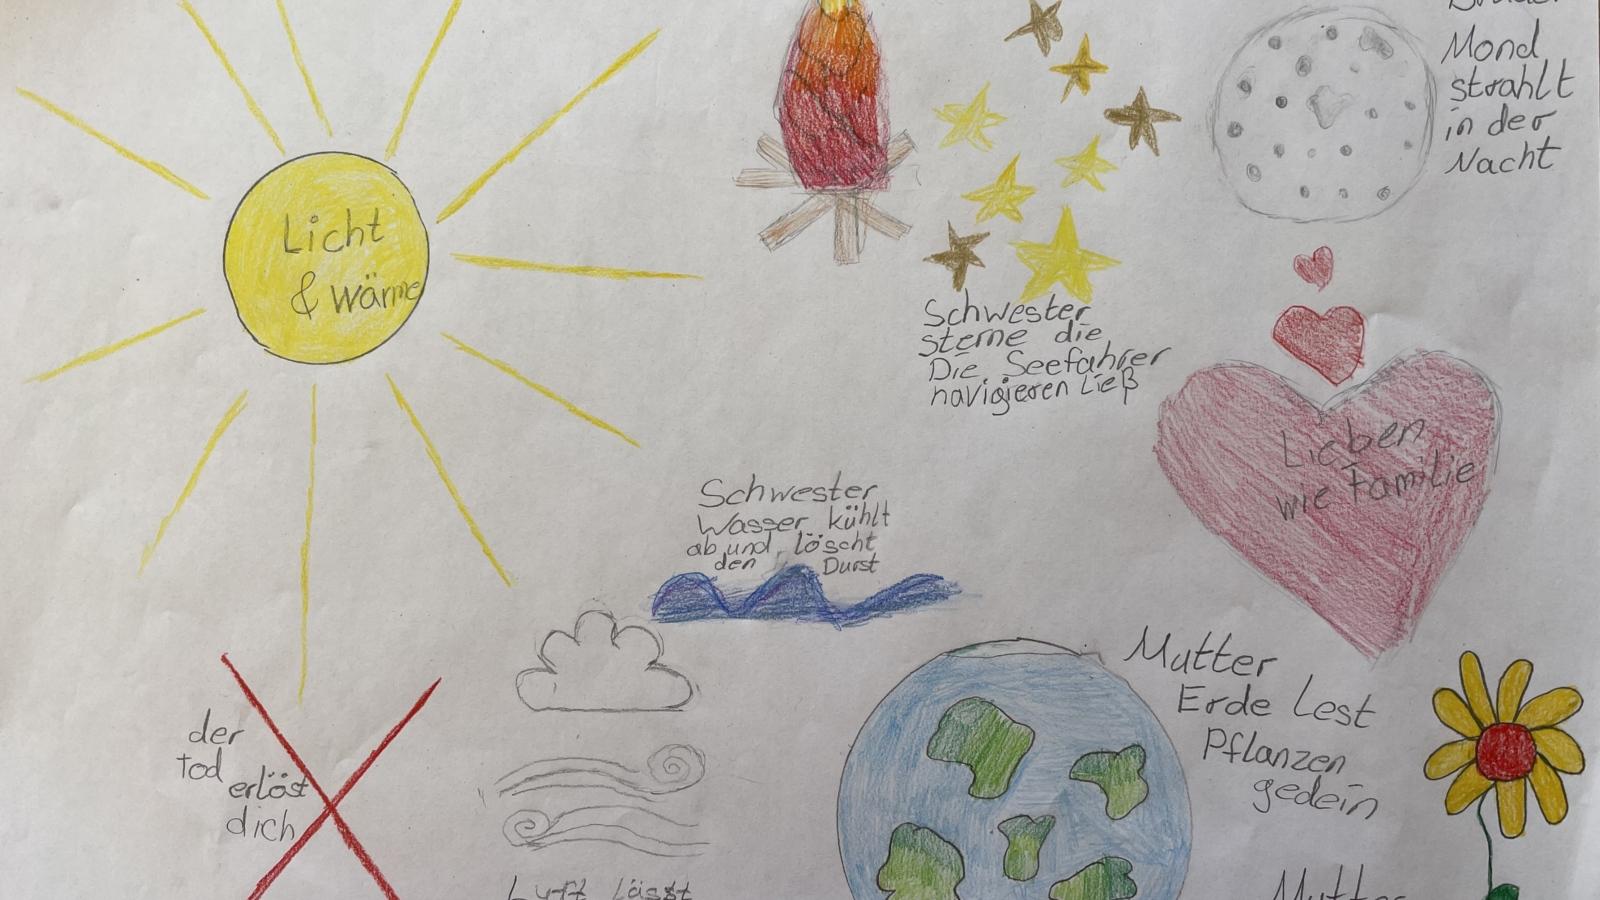 Mond
strahlt
in der
Nacht
Licht
& wärme
Schwester
sterne die
Die Seefahrer
navigieren Ließ
Lieben
wie Familie
Schwester
Wasser kühlt
ab und löscht
den Durst
Mutter
Erde Lest
Pflanzen
gedein
der
tod
erlöst
dich
Luft lässt
Mutter